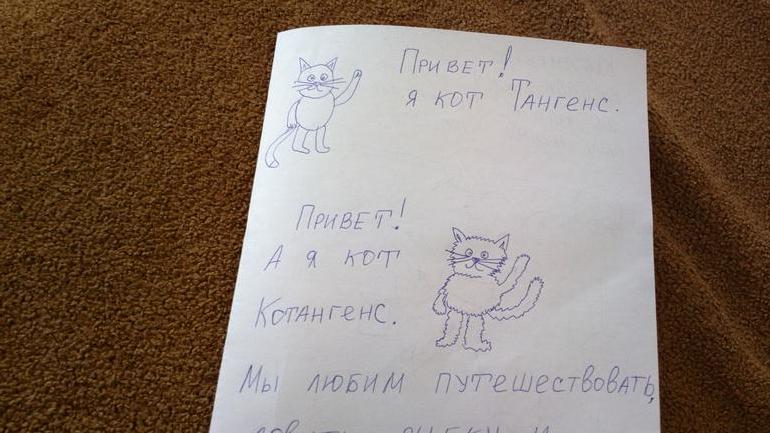 Привет!
я кот Тангенс.
Привет!
А я кот
Котангенс.
Мы любим путешествовать,